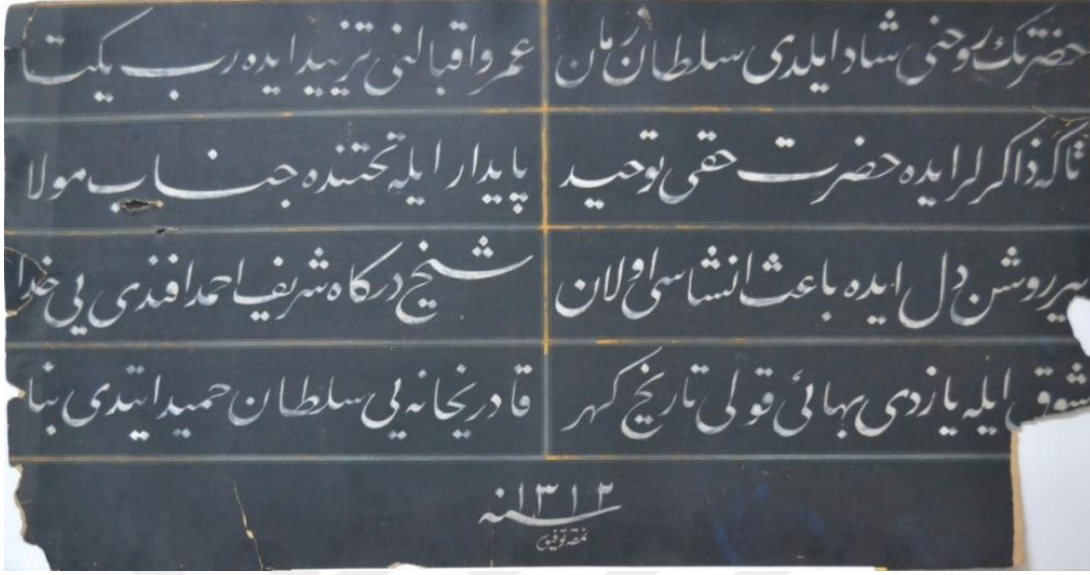 حضرتك روحنى شاد ايلدى سلطان زمان
عمر و اقبالنى تزييد ايده رب يكتا
تاكه ذاكرلر ايده حضرت حقى توحيد
پايدار ايله تختنده جناب مولا
پير روشن دل ايده باعث انشاسى اولان
شيخ درگاه شريف احمد افندى يى خدا
شوق ايله يازدى بهائى قولى تاريخ گهر
قادريخانه يى سلطان حميد ايتدى بنا
سنه ١٣١٢
نمقه توفيق